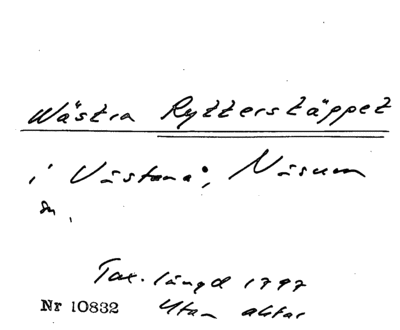 Wästra Ryttersläppet
i Västanå, Näsum
sn,
Tax. längd 1797
Nr 10832 Utan aktar